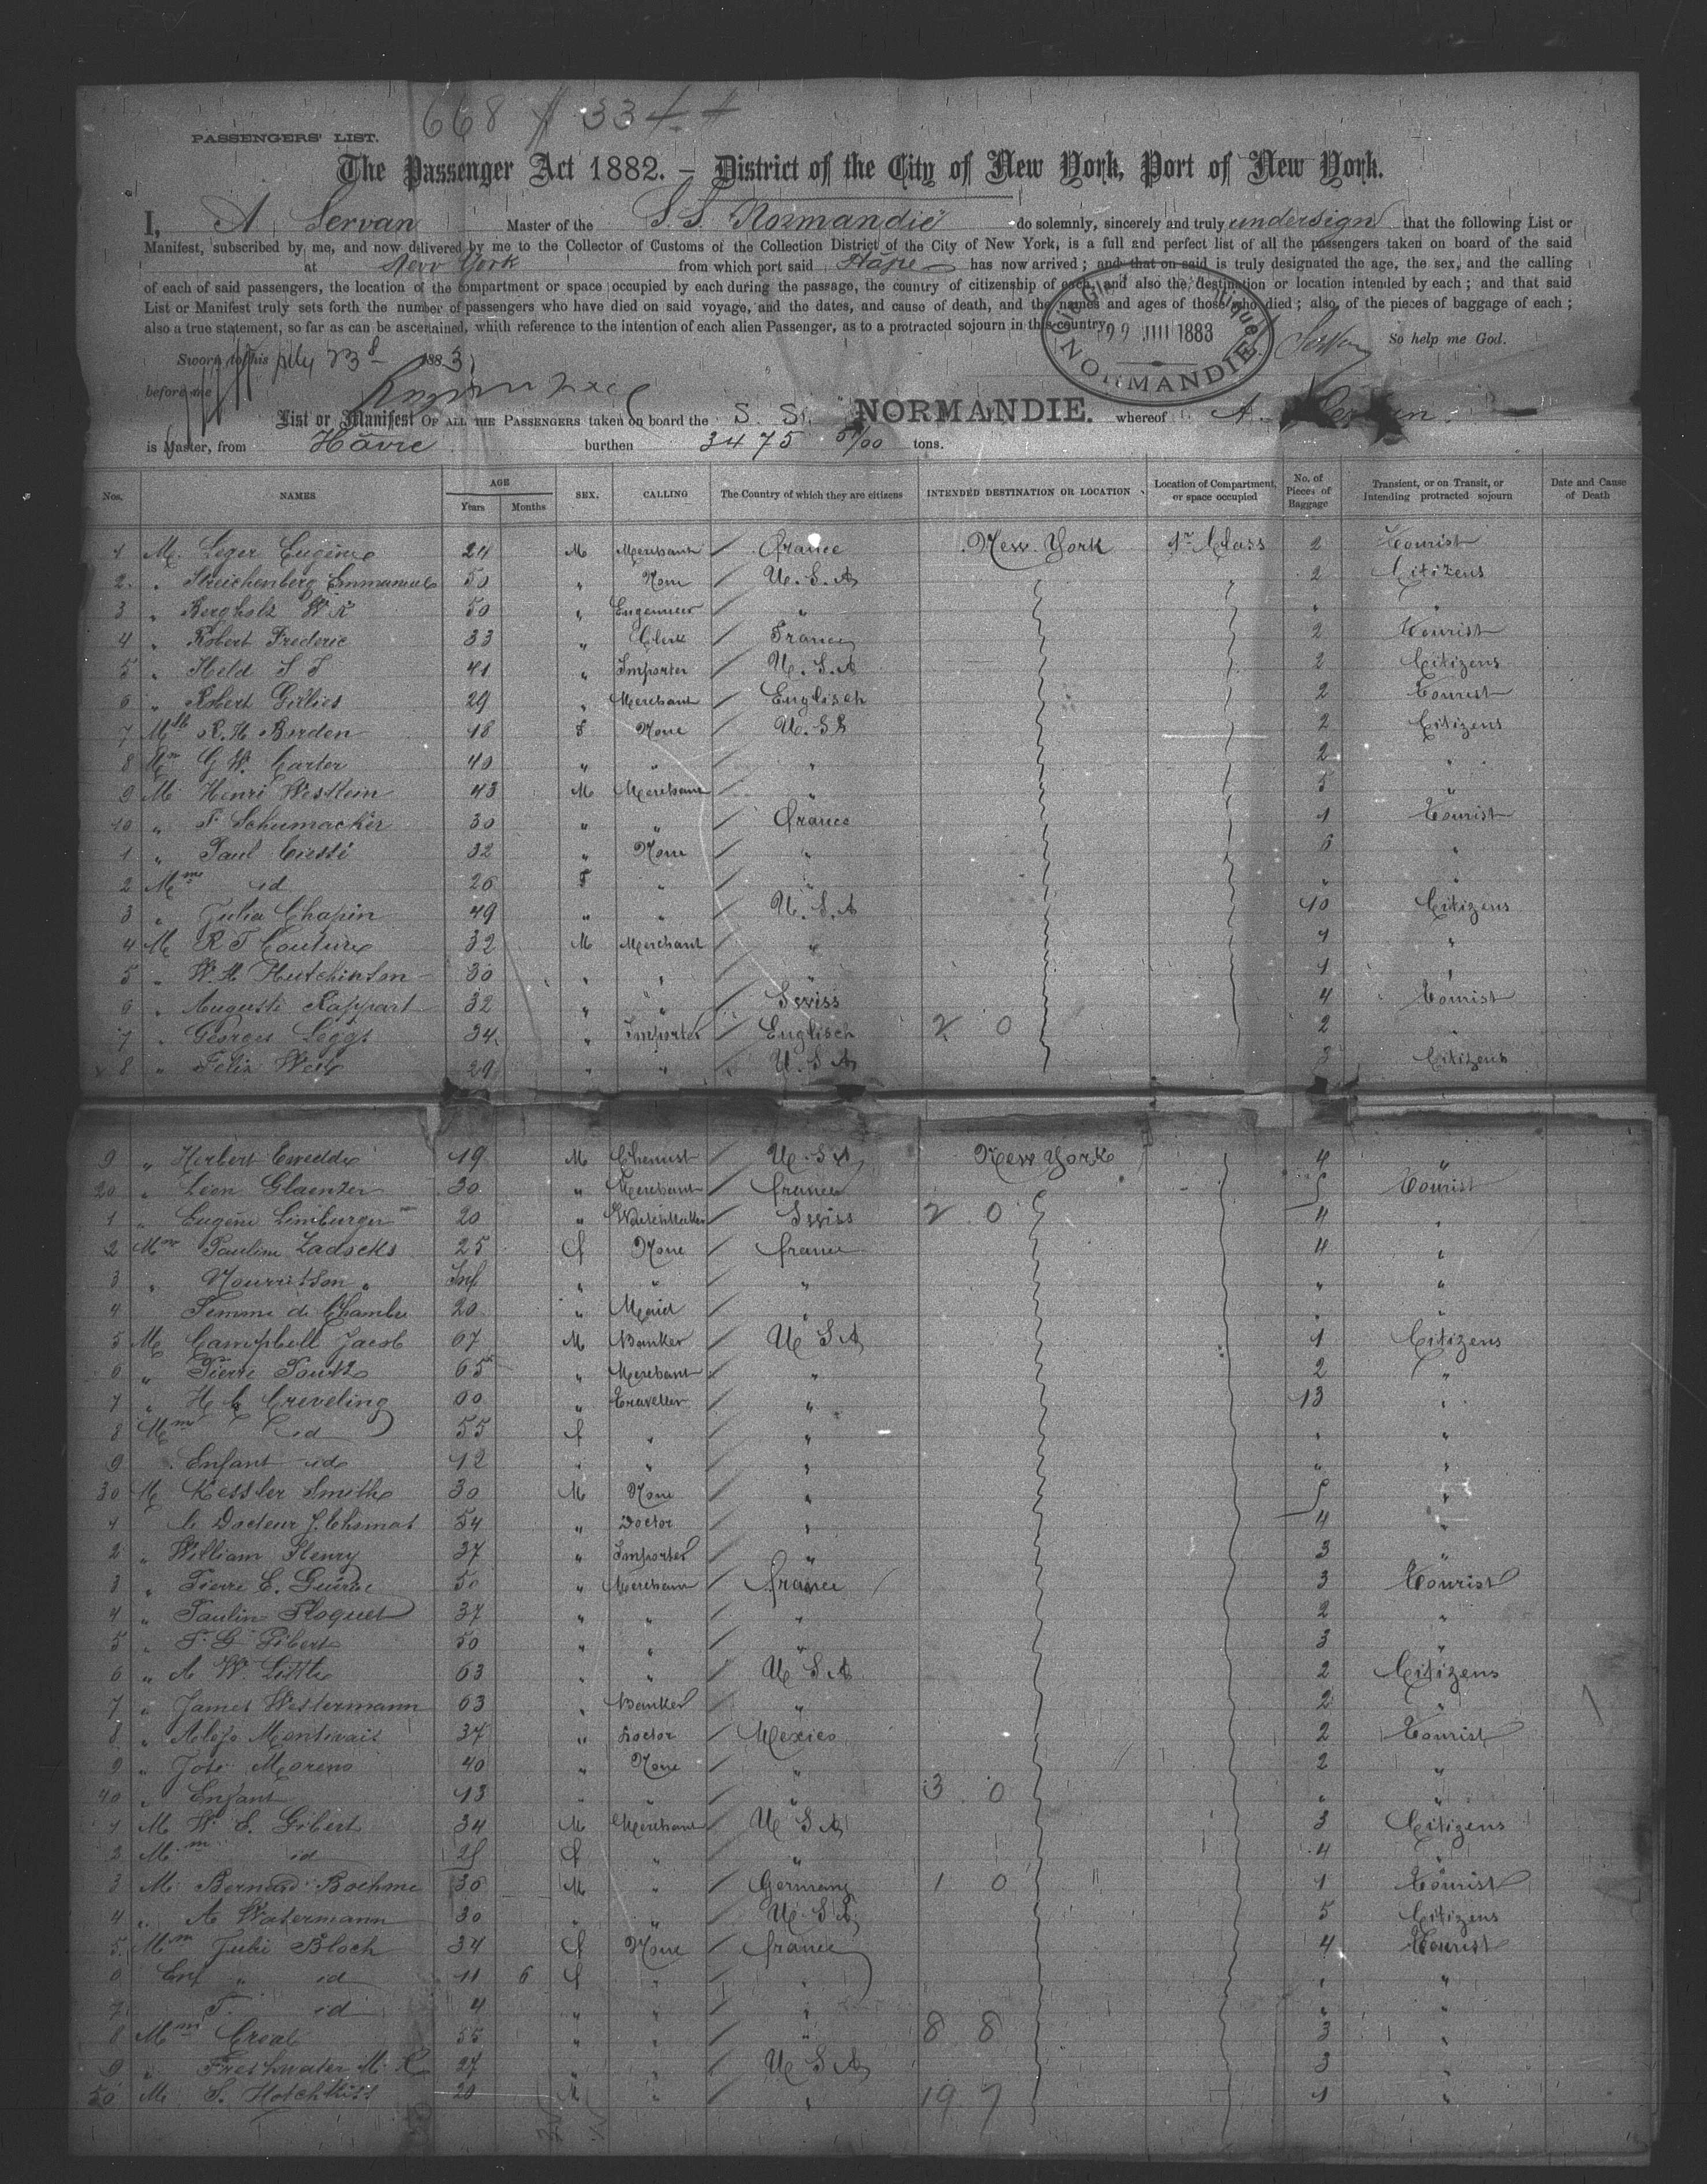 668 # 334 #
PASSENGERS' LIST.
The Passenger Act 1882. – District of the City of New York, Port of New York.
I, A Servan Master of the S.S. Normandie do solemnly, sincerely and truly undersign that the following List or
Manifest, subscribed by me, and now delivered by me to the Collector of Customs of the Collection District of the City of New York, is a full and perfect list of all the passengers taken on board of the said
at New York from which port said Hâvre has now arrived; and that on said is truly designated the age, the sex, and the calling
of each of said passengers, the location of the compartment or space occupied by each during the passage, the country of citizenship of each, and also the destination or location intended by each; and that said
List or Manifest truly sets forth the number of passengers who have died on said voyage, and the dates, and cause of death, and the names and ages of those who died; also, of the pieces of baggage of each;
also a true statement, so far as can be ascertained, whith reference to the intention of each alien Passenger, as to a protracted sojourn in this country.
1883
NORMANDIE
So help me God.
Sworn to this July 23 1883
before me
List or Manifest OF ALL THE PASSENGERS taken on board the S. S. NORMANDIE. whereof A. Servan
is Master, from Hâvre burthen 3475 tons.
Nos. NAMES AGE Years Months SEX. CALLING The Country of which they are citizens INTENDED DESTINATION OR LOCATION Location of Compartment, or space occupied No. of Pieces of Baggage Transient, or on Transit, or Intending protracted sojourn Date and Cause of Death
1 M. Leger Eugène 24 M Merchant / France New York 1r Class 2 Tourist
2 " Streichenberg Emmanuel 50 " None / U.S.A 2 Citizens
3 " Bergholz W R 50 " Engenieer / " " "
4 " Robert Frederic 33 " Clerk / France 2 Tourist
5 " Held S 41 " Importer / U.S.A 2 Citizens
6 " Robert Gillies 29 " Merchant / Englisch 2 Tourist
7 Mlle R. H. Borden 18 F None / U.S.A 2 Citizens
8 Mme G W. Carter 40 " " / " 2 "
9 M. Henri Westein 43 M Merchant / " 5 "
10 " F Schumacker 30 " " / France 1 Tourist
1 " Paul 32 " None / " 6 "
2 Mme id 26 F " / " " "
3 " Julia Chapin 49 " " / U.S.A 10 Citizens
4 M R T Couture 32 M Merchant / " 1 "
5 " W. H. Hutchinson 30 " " / " 1 "
6 " Auguste Rappart 32 " " / Swiss 4 Tourist
7 " Georges Leggs 34 " Importer / Englisch 2 0 2 "
8 " Felix Weil 29 " " / U S A 3 Citizens
9 " Herbert 19 M Chemist / U.S.A, New York 4 "
20 " Léon Glaenzer 30 " Merchant / france Tourist
1 " Eugène Limburger 20 " / Swiss 2 0 4 "
2 Mme Pauline 25 f None / france 4 "
3 " Nourrisson " Inf " " / " " "
4 Femme de Chambre 20 " Maid / " " "
5 M Campbell Jacob 67 M Banker / U S A 1 Citizens
6 " Pierre 65 " Merchant / " 2 "
7 " H C Creveling 60 " Traveller / " 13 "
8 Mme id 55 f " / " " "
9 Enfant id 12 " " / " " "
30 M Kessler Smith 30 M None / " "
1 le Docteur 54 " Doctor / " 4 "
2 " William Fleury 37 " Importer / " 3 "
3 " Pierre E. Guérin 50 " Merchant / france 3 Tourist
4 " Paulin Floquet 37 " " / " 2 "
5 " F. G Pibert 50 " " / " 3 "
6 " A W. Little 63 " " / U S A 2 Citizens
7 " James Westermann 63 " Banker / " 2 "
8 " Alejo 37 " Doctor / Mexico 2 Tourist
9 " José Moreno 40 " None / " 2 "
40 " Enfant 13 " " / " 3 0 " "
1 M W. E. Gibert 34 M Merchant / U S A 3 Citizens
2 Mme id f " / " 4 "
3 M. Bernard Boehme 36 M " / Germany 1 0 1 Tourist
4 " A Watermann 30 " " / U.S.A, 5 Citizens
5 Mme Julie Bloch 34 f None / france 4 Tourist
6 Enf " id 11 6 f " / " " "
7 id 4 " " / " " "
8 Mme 55 " " / " 8 8 3 "
9 " Freshwater M. R 27 " " / U S A 3 "
50 M S. Hotchkiss 20 M " / " 19 7 1 "